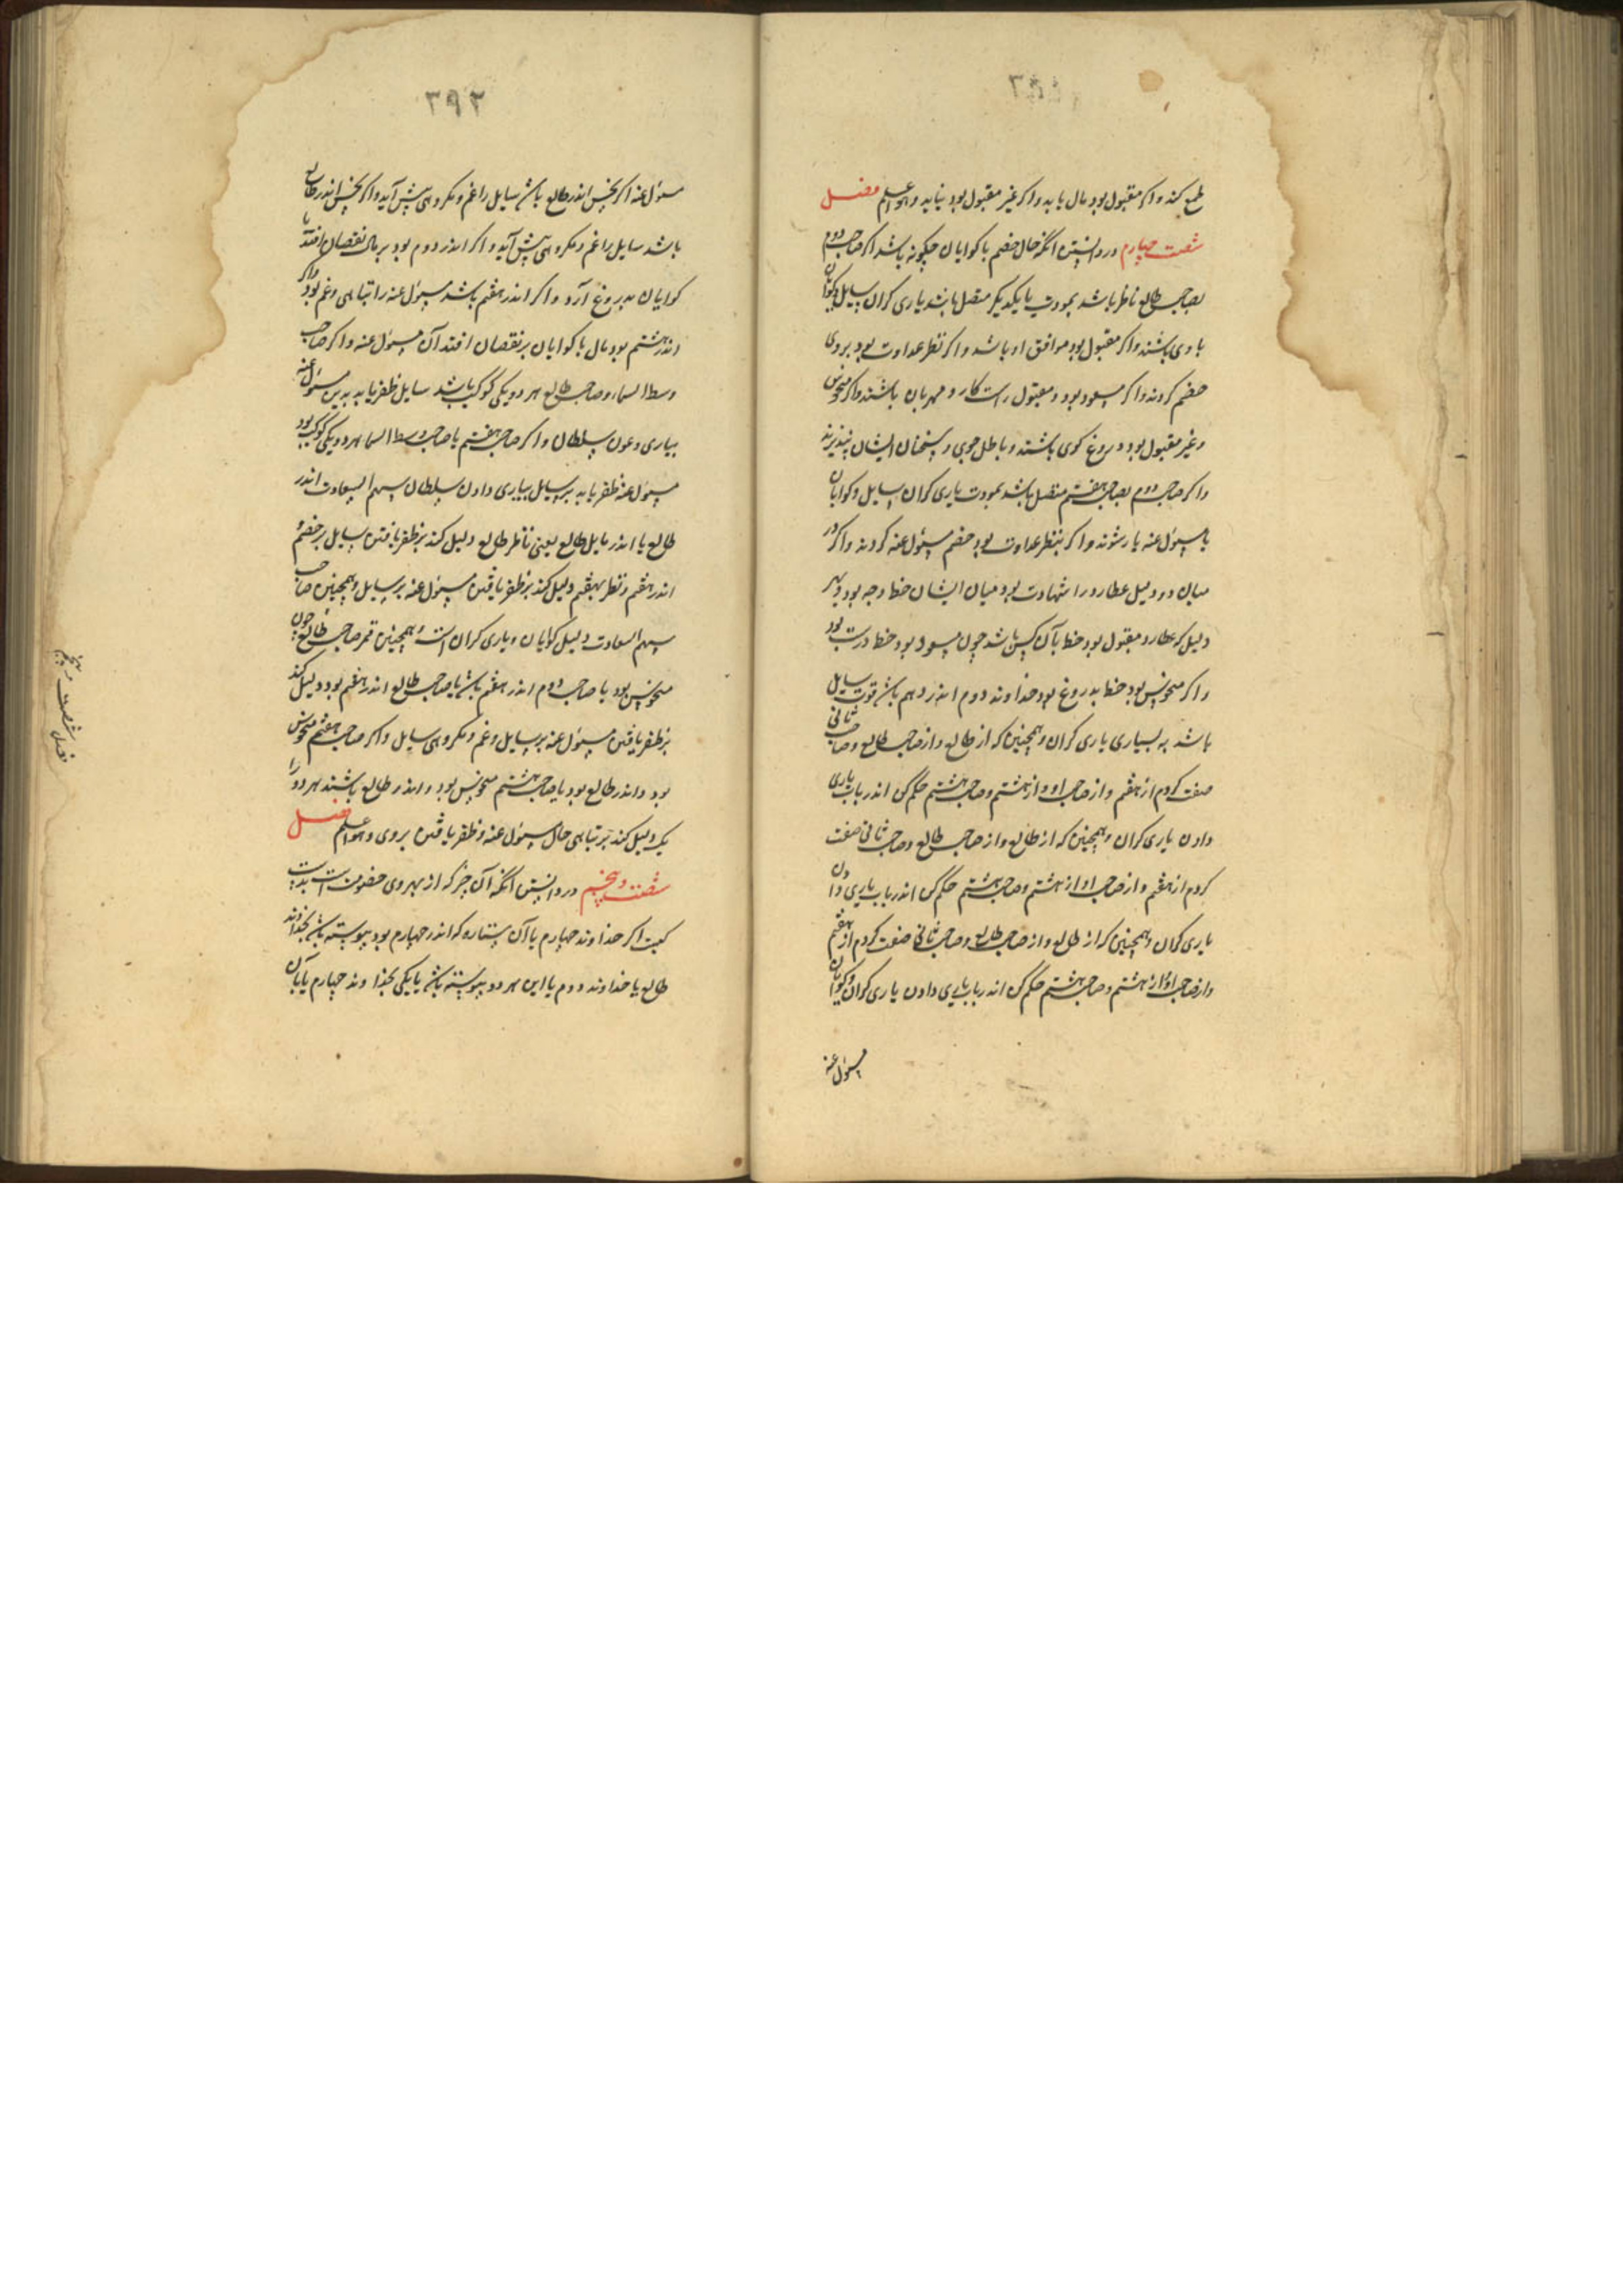 طمع کند و اکر مقبول بود مال یابد و اکر غیر مقبول بود نیابد و هو اعلم فصل
شصت چهارم در دانستن انکه حال خصم با کوایان چکونه باشد اکر صاحب دوم
بصاحب طالع ناظر باشد بمودت یا یکدیکر متصل باشند یاری کران سایل و کوایان
با وی باشند و اکر مقبول بود موافق او باشد و اکر نظر عداوت بود بر وی
خصم کردند و اکر مسعود بود و مقبول راست کار و مهربان باشند و اکر منحوس
و غیر مقبول بود دروغ کوی باشند و باطل جوی و سخنان ایشان نپذیرند
و اکر صاحب دوم بصاحب هفتم متصل باشد بمودت یاری کران سایل و کوایان
با مسؤل عنه یار شوند و اکر بنظر عداوت بود خصم مسؤل عنه کردند و اکر در
میان دو دلیل عطارد را شهادت بود میان ایشان خط و جه بود و بهر
دلیل که عطارد مقبول بود خط بآن کس باشد چون مسعود بود خط درست بود
و اکر منحوس بود خط بدروغ بود خداوند دوم اندر دهم باشد قوت سایل
باشد به بسیاری یاری کران و همچنین که از طالع و از صاحب طالع و صاحب ثانی
صفت کردم از هفتم و از صاحب او و از هشتم و صاحب هشتم حکم کن اندر باب یاری
دادن یاری کران و همچنین که از طالع و از صاحب طالع و صاحب ثانی صفت
کردم از هفتم و از صاحب او از هشتم و صاحب هشتم حکم کن اندر باب یاری دادن
یاری کران و همچنین که از طالع و از صاحب طالع و صاحب ثانی صفت کردم از هفتم
و از صاحب او از هشتم و صاحب هشتم حکم کن اندر باب یاری دادن یاری کران و کوایان
مسؤل عنه
۳۹۲
مسؤل عنه اکر نحس اندر طالع باشد سایل را غم و مکروهی پیش آید و اکر نحس اندر طالع
باشد سایل را غم و مکروهی پیش آید و اکر اندر دوم بود بر مال نقصان افتد یا
کوایان بدروغ آرد و اکر اندر هفتم باشد مسؤل عنه را تباهی و غم بود و اکر
اندر هشتم بود مال یا کوایان بر نقصان افتد آن مسؤل عنه و اکر صاحب
وسط السماء و صاحب طالع هر دو یکی کوکب باشد سایل ظفر یابد بدین مسؤل عنه
بیاری و عون سلطان و اکر صاحب هفتم یا صاحب وسط السما هر دو یکی کوکب بود
مسؤل عنه ظفر یابد بر سایل بیاری دادن سلطان سهم السعادت اندر
طالع یا اندر مایل طالع یعنی ناظر طالع دلیل کند بر ظفر یافتن سایل بر خصم و
اندر هفتم و نظر بهفتم دلیل کند بر ظفر یافتن مسؤل عنه بر سایل و همچنین صاحب
سهم السعادت دلیل کوایان و یاری کران است و همچنین قمر صاحب طالع چون
منحوس بود یا صاحب دوم اندر هفتم باشد یا صاحب طالع اندر هفتم بود دلیل کند
بر ظفر یافتن مسؤل عنه بر سایل و غم و مکروهی سایل و اکر صاحب هفتم منحوس
بود و اندر طالع بود یا صاحب هشتم منحوس بود و اندر طالع باشند هر دو را
یک دلیل کند بر تباهی حال مسؤل عنه و ظفر یافتن بر وی و هو اعلم فصل
شصت و پنجم در دانستن انکه آن چیز که از بهر وی خصومت است بدست
کیست اکر خداوند چهارم یا آن ستاره که اندر چهارم بود پیوسته باشد بخداوند
طالع یا خداوند دوم یا این هر دو پیوسته باشد یا یکی بخداوند چهارم یا بآن
فصل شصت و پنجم